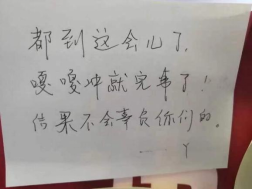 都到这会儿了，
嘎嘎冲就完事了！
结果不会辜负你们的。
……丫